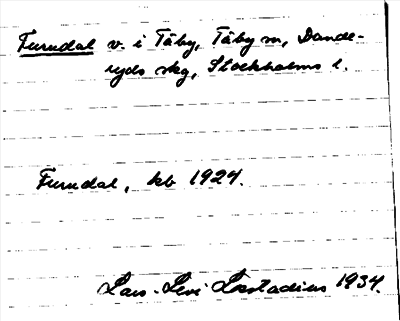 Furudal v. i Täby, Täby sn, Dande-
ryds skg, Stockholms l.
Furudal, kb 1924.
Lars-Levi Læstadius 1934.